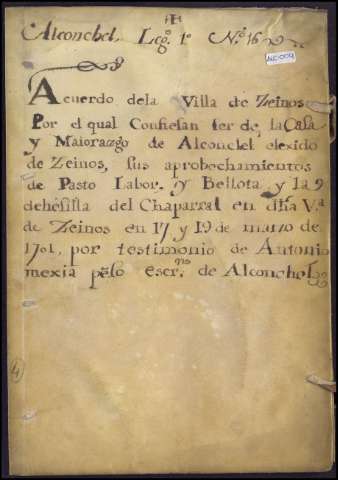 Alconchel, Leg.º 1º N.º 16
ALC-009
Acuerdo dela Villa de Zeinos
Por el qual Confiesan ser de la Casa
y Maiorazgo de Alconchel elexido
de Zeinos, sus aprobechamientos
de Pasto Labor, y Bellota, y la
dehesilla del Chaparral en dha V.ª
de Zeinos en 17 y 19 de marzo de
1701, por testimonio de Antonio
mexia escr.no de Alconchel
4